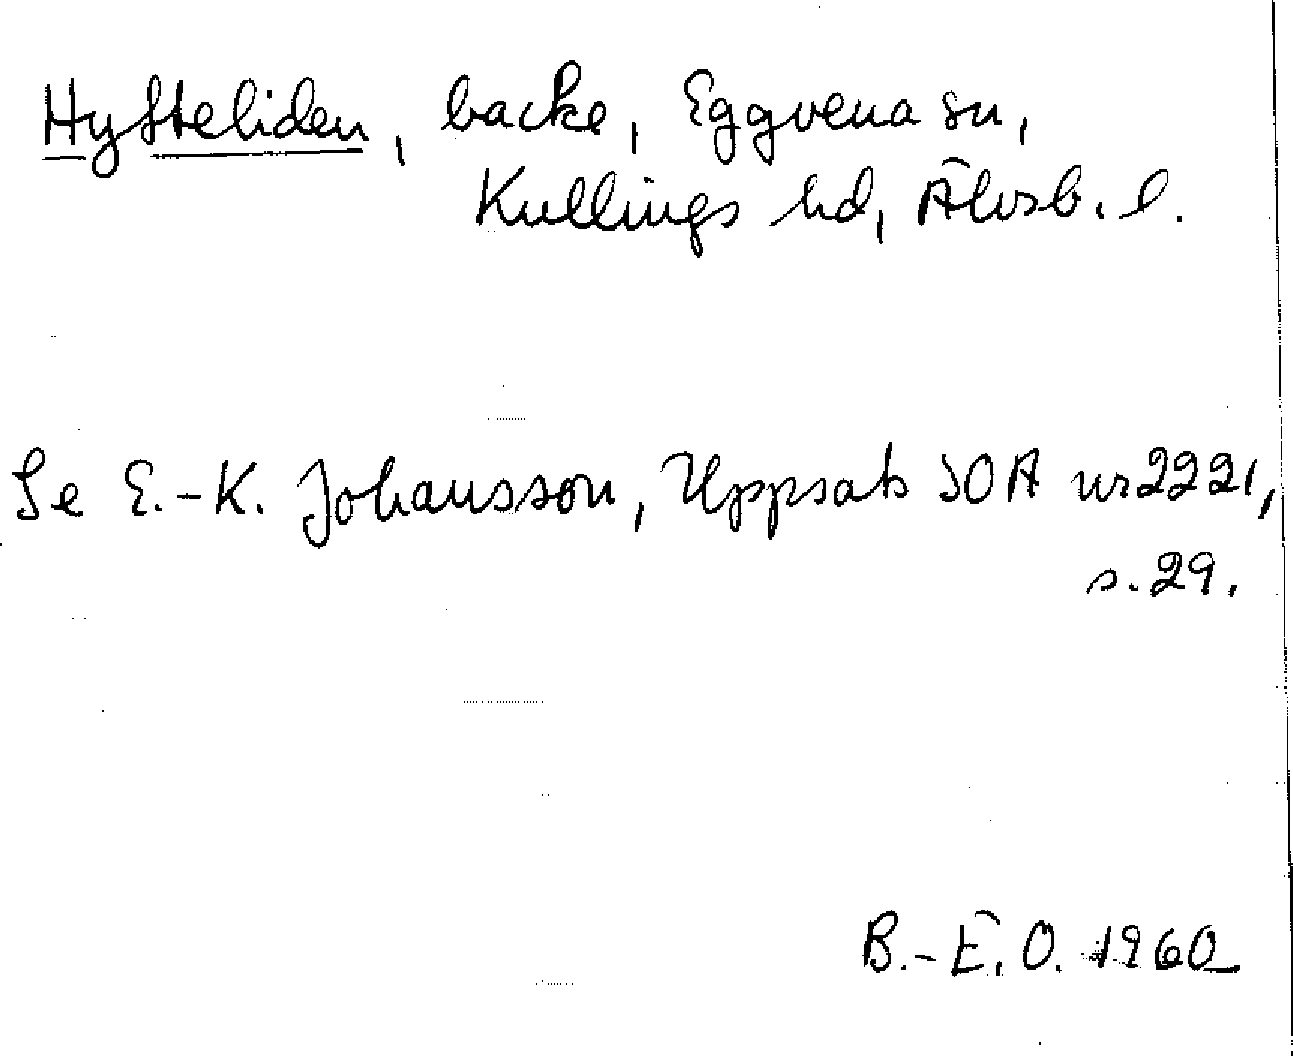 Hysteliden, backe, Eggvena sn,
Kullings hd, Älvsb. l.
Se E.-K. Johansson, Uppsats SOA nr 2221,
s. 29.
B.-E. O. 1960